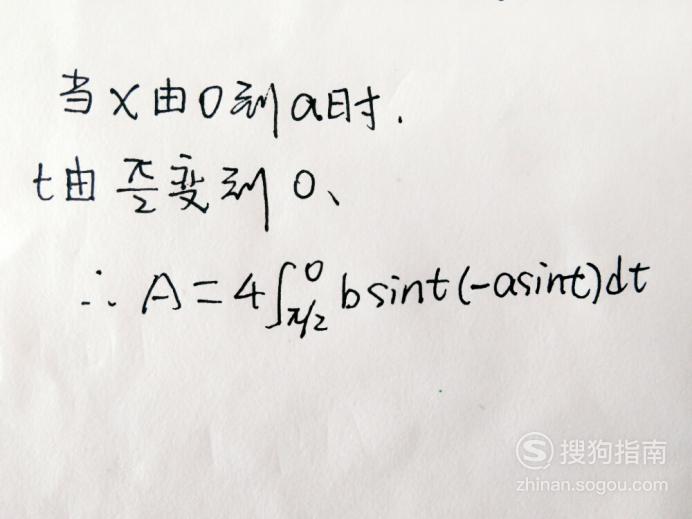 当x由0到a时.
t由π/2变到0、
∴ A=4∫_{π/2}^{0} bsint(-asint)dt
搜狗指南
zhinan.sogou.com